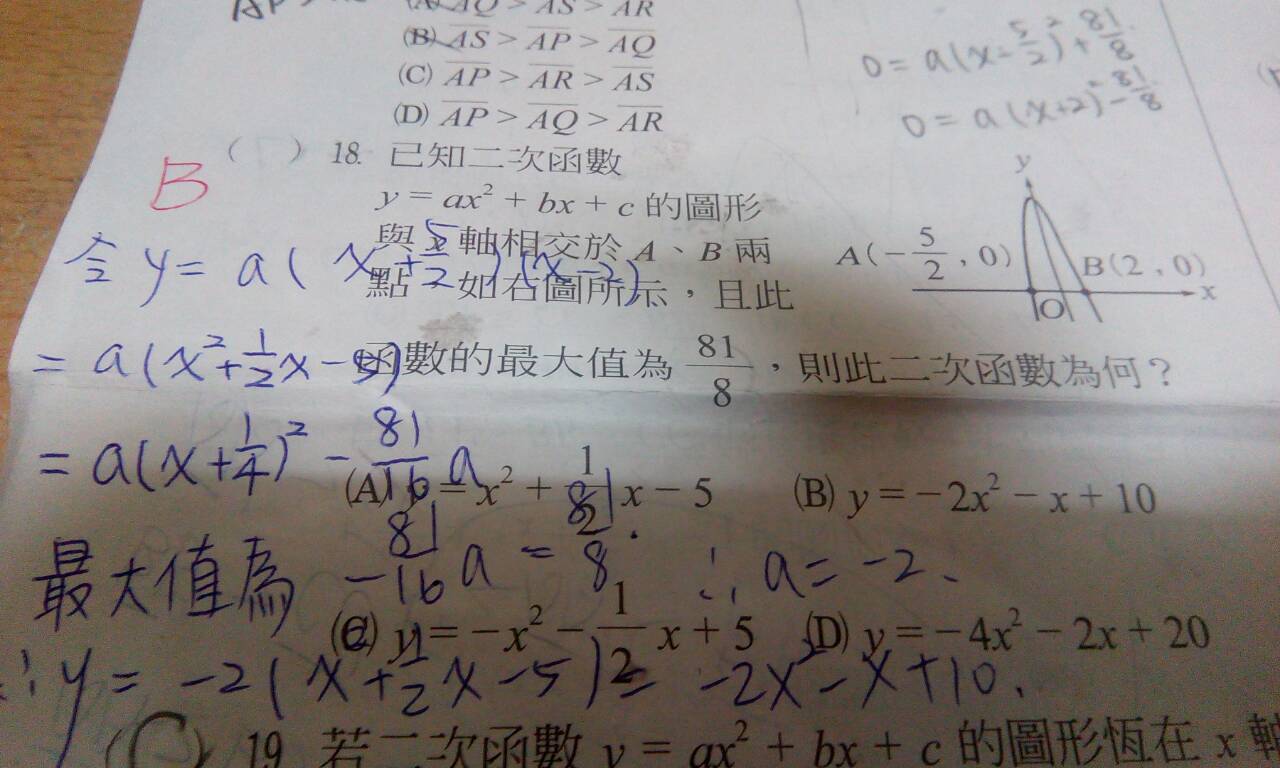 (A) AQ > AS > AR
(B) AS > AP > AQ
(C) AP > AR > AS
(D) AP > AQ > AR
0 = a(x - 5/2)² + 81/8
0 = a(x+2)² - 81/8
B
( ) 18. 已知二次函數
y = ax² + bx + c 的圖形
與 x 軸相交於 A、B 兩
點,如右圖所示,且此
函數的最大值為 81/8,則此二次函數為何?
y
A(-5/2, 0)
B(2, 0)
O
x
(A) y = x² + 1/2 x - 5
(B) y = -2x² - x + 10
(C) y = -x² - 1/2 x + 5
(D) y = -4x² - 2x + 20
令 y = a(x + 5/2)(x - 2)
= a(x² + 1/2 x - 5)
= a(x + 1/4)² - 81/16 a
最大值為 -81/16 a = 81/8. ∴ a = -2.
∴ y = -2(x² + 1/2 x - 5) = -2x² - x + 10.
(C) 19. 若二次函數 y = ax² + bx + c 的圖形恆在 x 軸